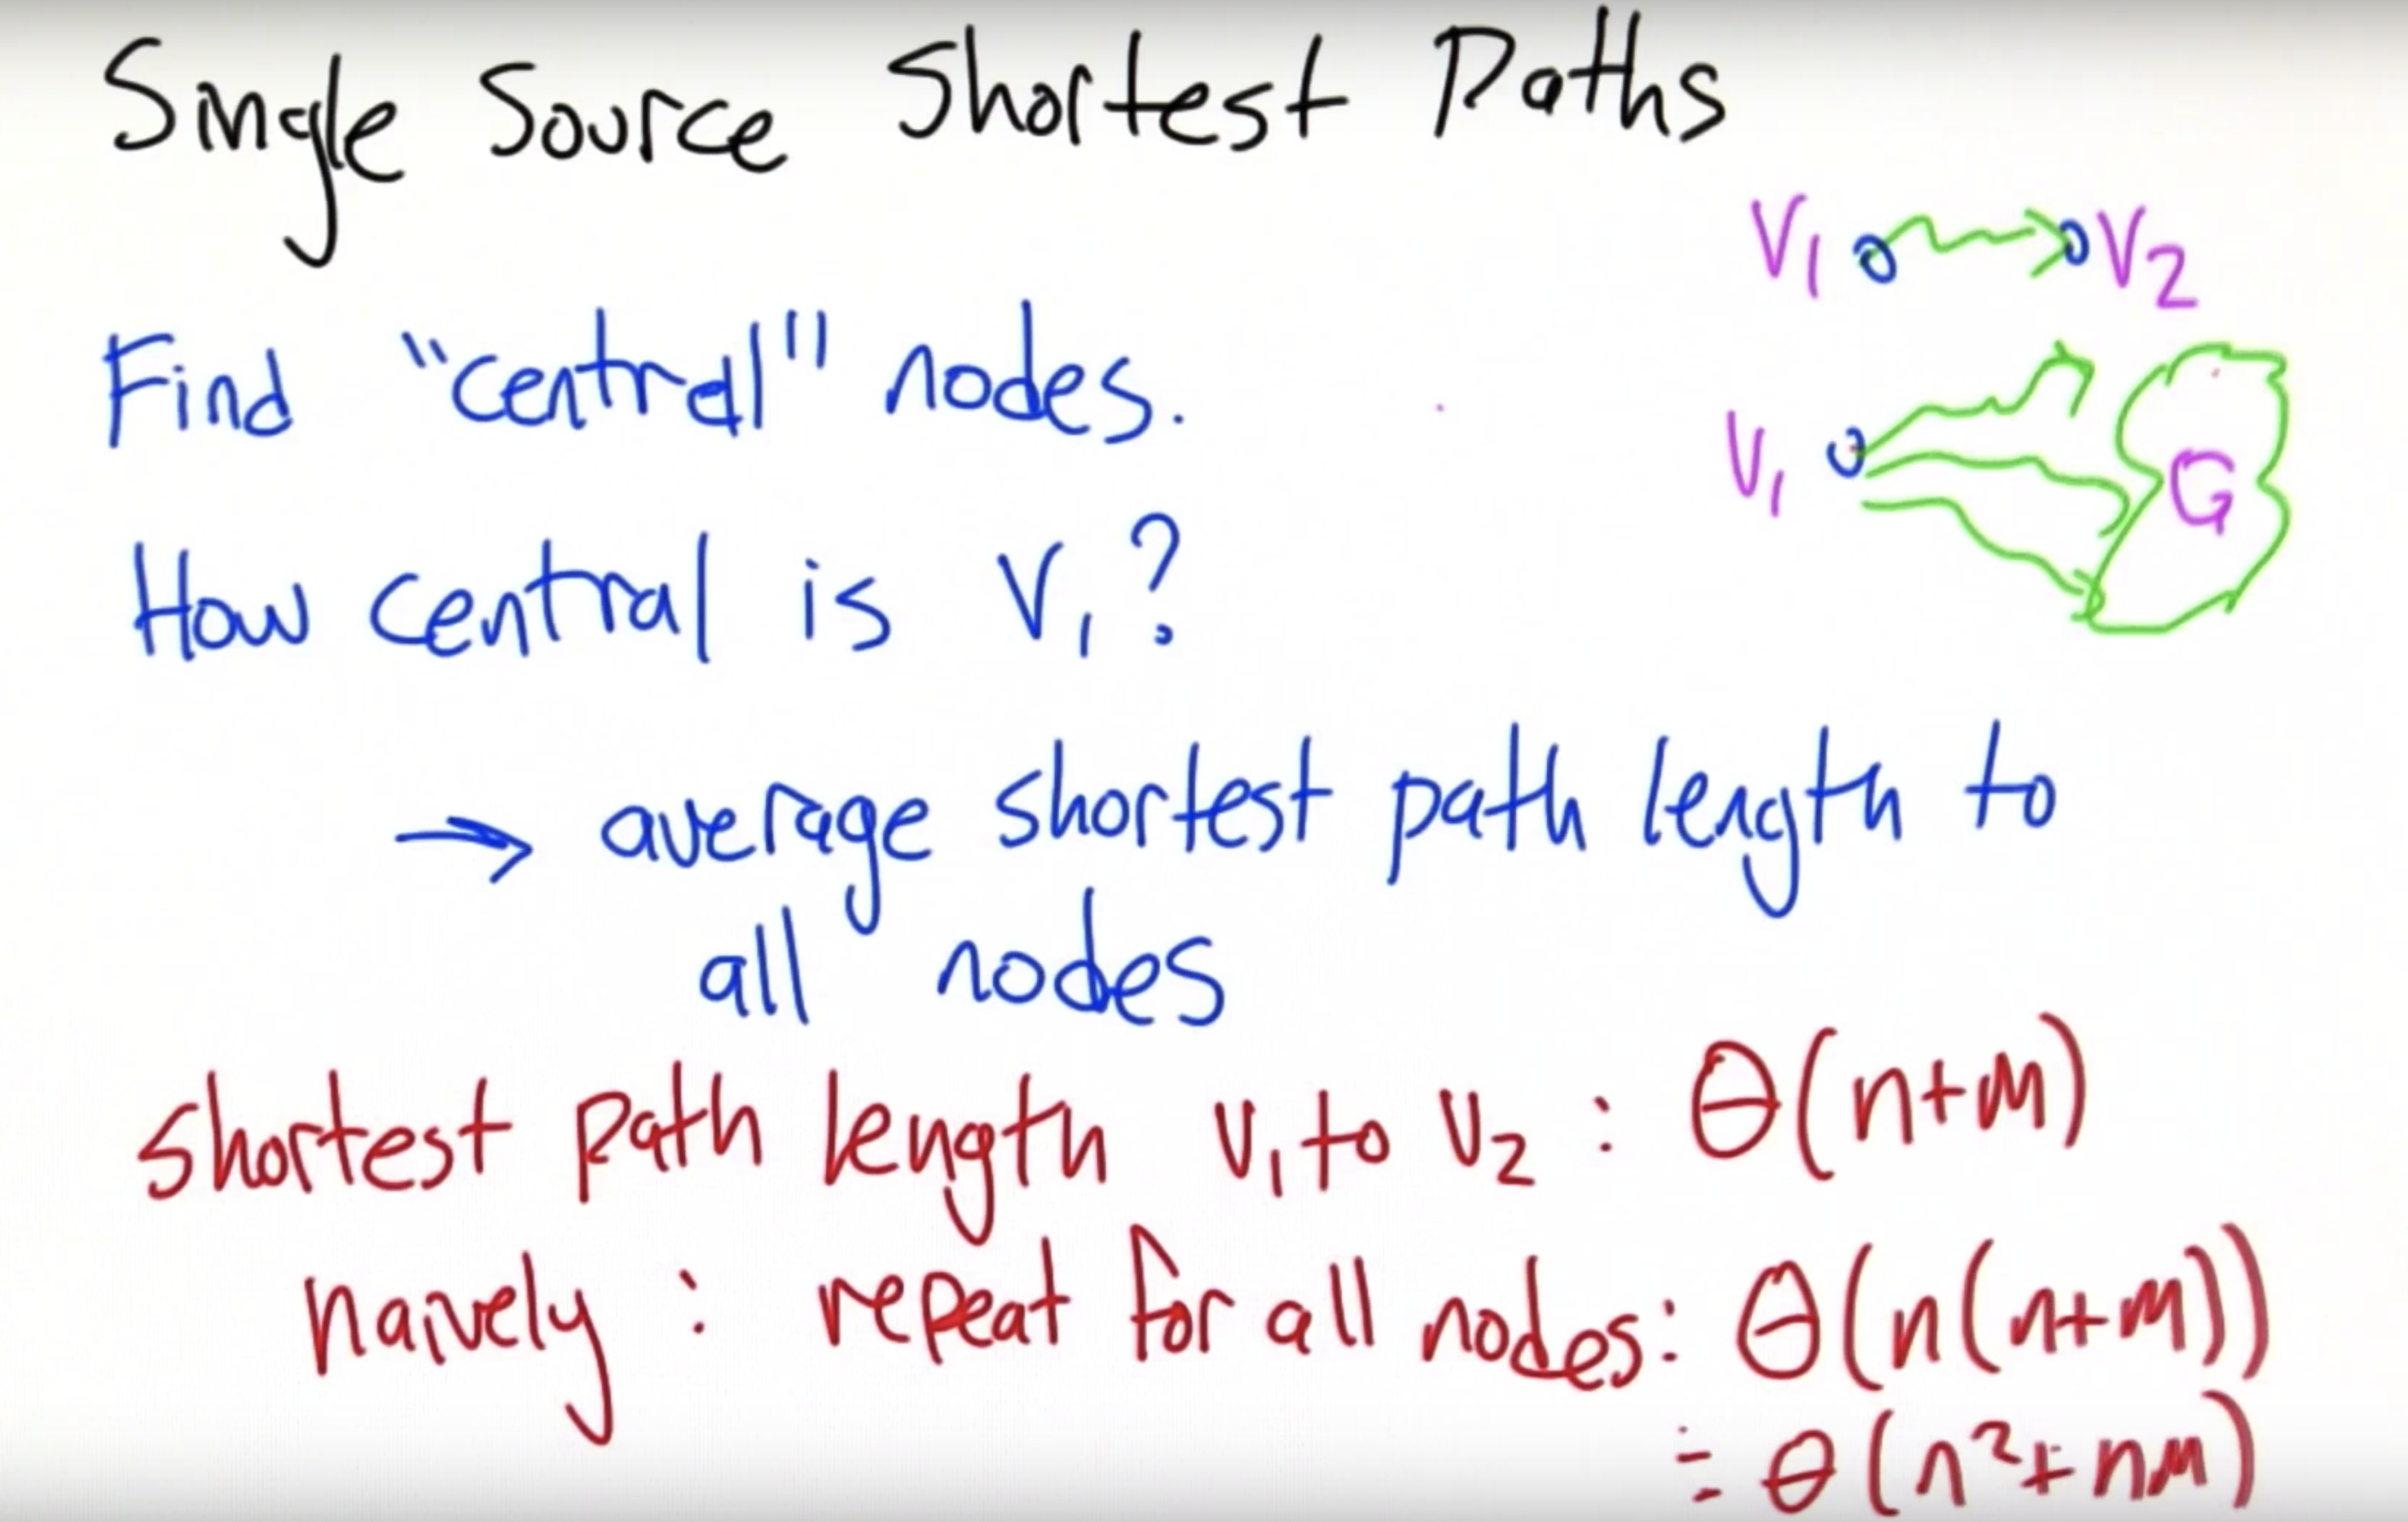 Single Source Shortest Paths
V₁ V₂
Find "central" nodes.
V₁ G
How central is V₁?
→ average shortest path length to
all nodes
Shortest path length V₁ to V₂ : Θ(n+m)
naively : repeat for all nodes: Θ(n(n+m))
= Θ(n²+nm)